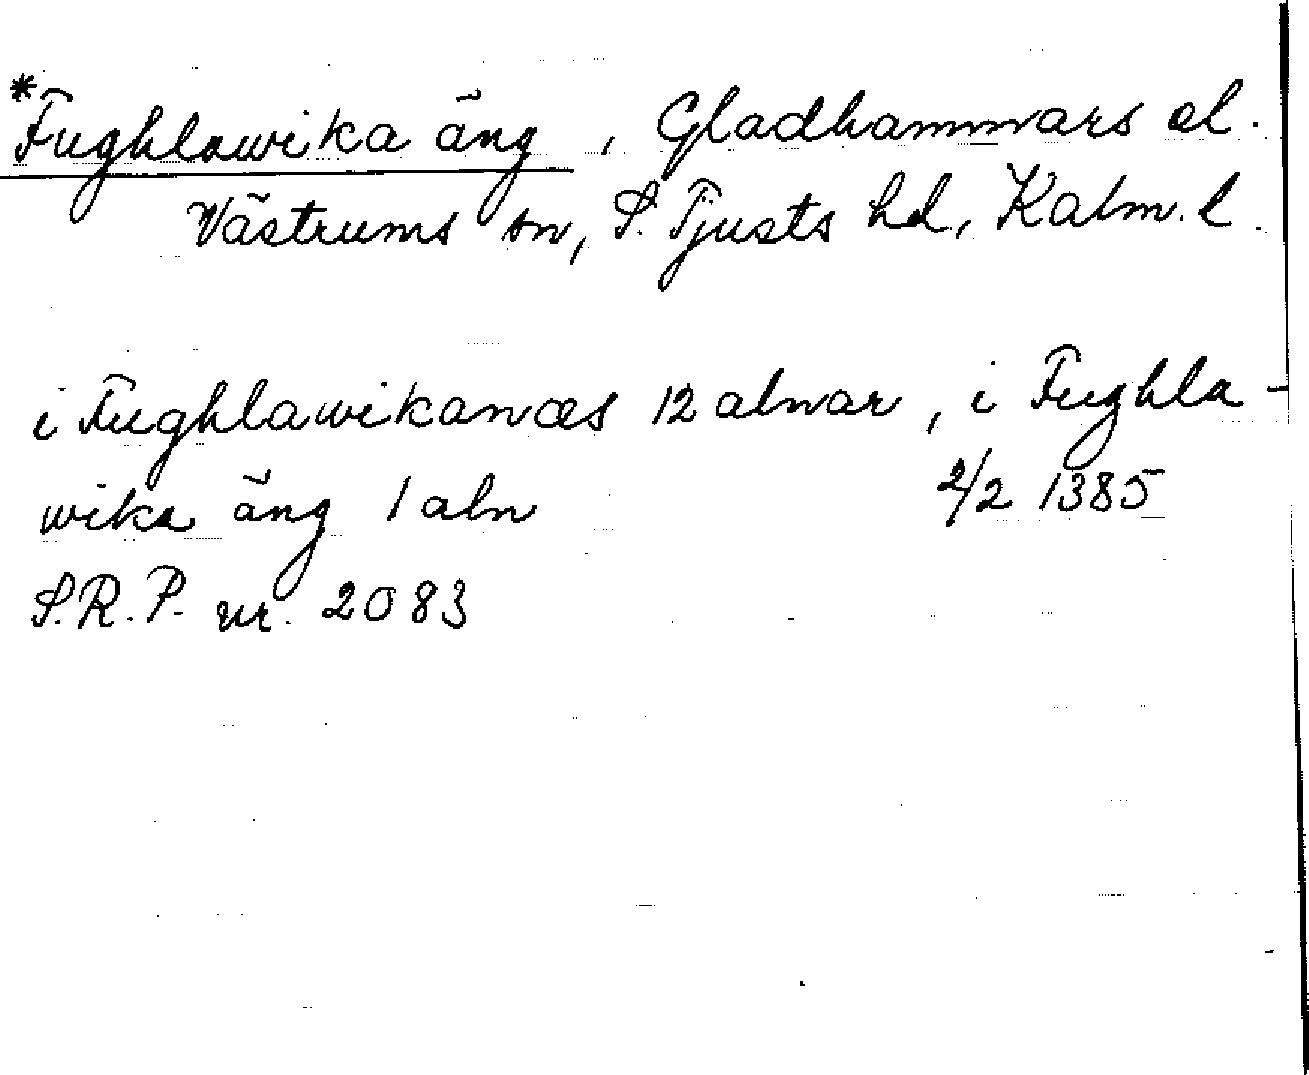 *Fughlawika äng, Gladhammars el.
Västrums sn, S. Tjusts hd, Kalm. l.
i Fughlawikanæs 12 alnar, i Fughla-
wika äng 1 aln 2/2 1385
S.R.P. nr. 2083